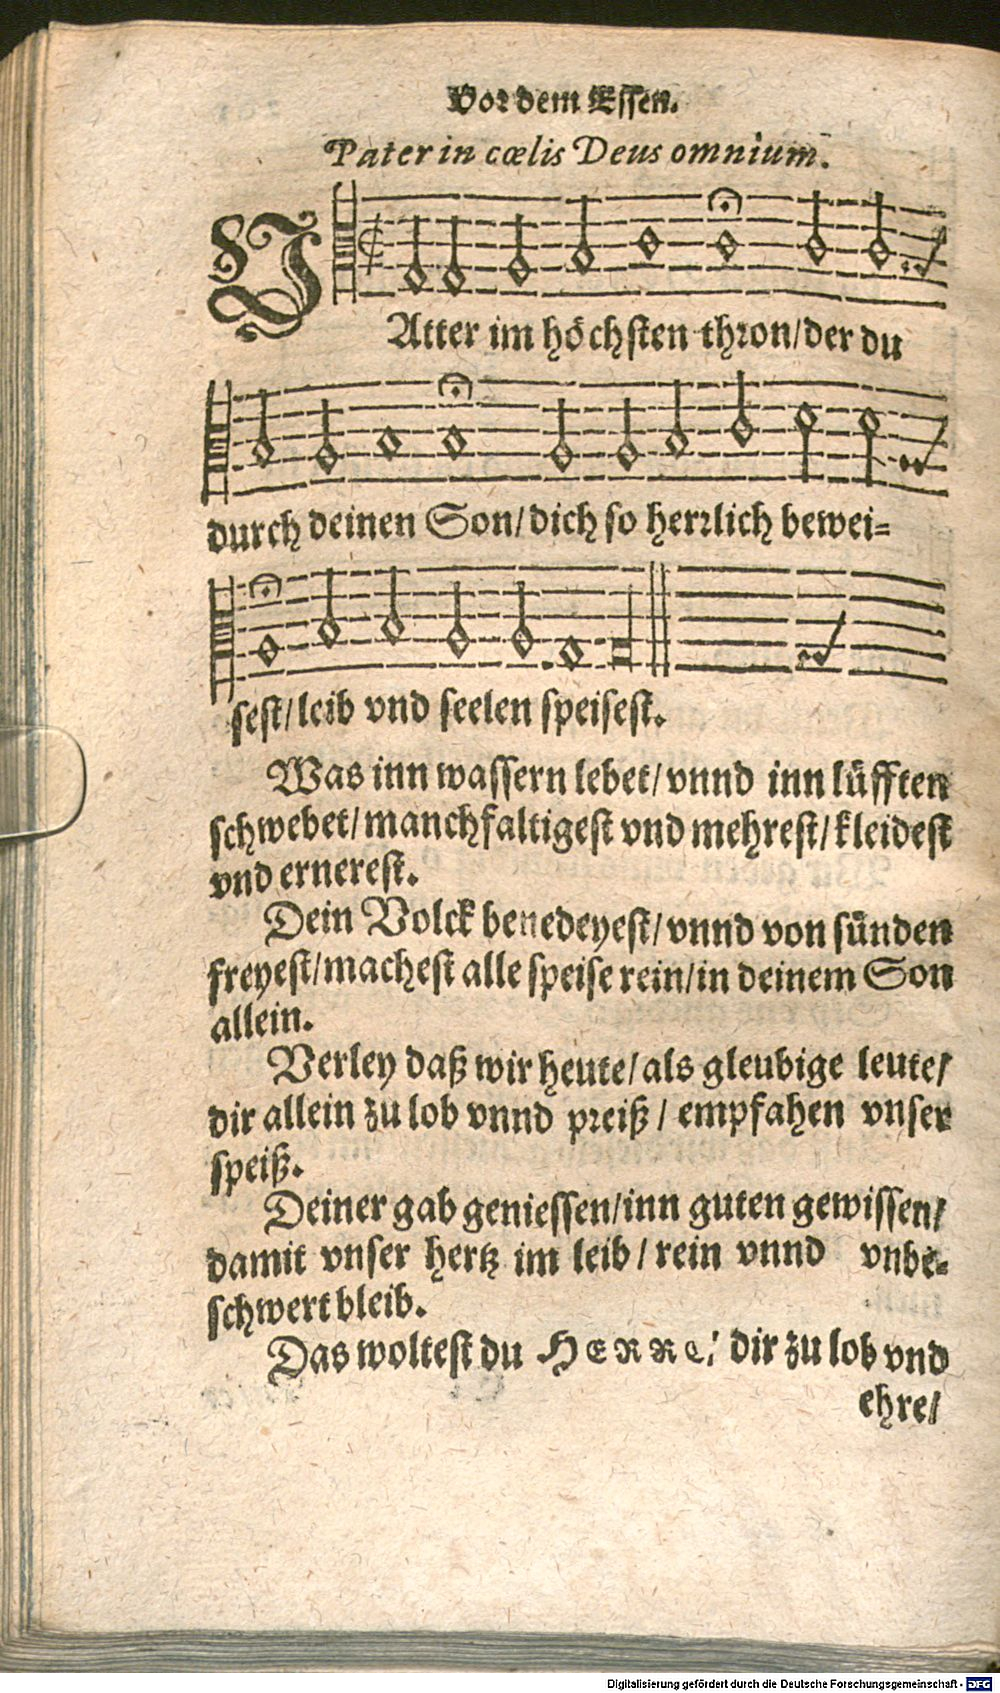 Vor dem Essen.
Pater in cœlis Deus omnium.
VAtter im höchsten thron/der du
durch deinen Son/dich so herrlich bewei⸗
sest/leib vnd seelen speisest.
Was inn wassern lebet/vnnd inn lüfften
schwebet/manchfaltigest vnd mehrest/kleidest
vnd ernerest.
Dein Volck benedeyest/vnnd von sünden
freyest/machest alle speise rein/in deinem Son
allein.
Verley daß wir heute/als gleubige leute/
dir allein zu lob vnnd preiß/ empfahen vnser
speiß.
Deiner gab geniessen/inn guten gewissen/
damit vnser hertz im leib/rein vnnd vnbe⸗
schwert bleib.
Das woltest du HERRE/ dir zu lob vnd
ehre/
Digitalisierung gefördert durch die Deutsche Forschungsgemeinschaft - DFG